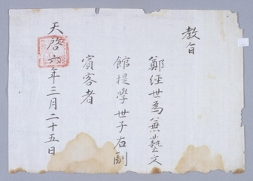 教旨
鄭經世爲兼藝文
館提學世子右副
賓客者
天啓六年三月二十五日